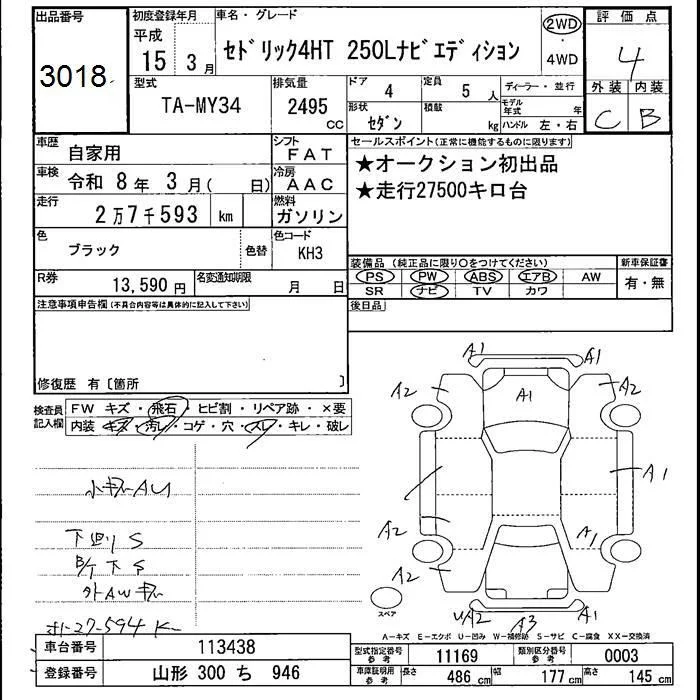 出品番号
3018
初度登録年月
平成
15年 3月
車名・グレード
セドリック4HT 250Lナビエディション
2WD
・
4WD
評価点
4
外装 内装
C B
型式
TA-MY34
排気量
2495
CC
ドア
4
定員
5人
ディーラー・並行
形状
セダン
積載
kg
モデル年式
年
ハンドル 左・右
車歴
自家用
シフト
FAT
車検
令和 8年 3月( 日)
冷房
AAC
走行
2万7千593 km
燃料
ガソリン
色
ブラック
色替
色コード
KH3
R券
13,590円
名変通知期限
月 日
セールスポイント(正常に機能するものに限ります)
★オークション初出品
★走行27500キロ台
装備品(純正品に限り○をつけてください)
PS PW ABS エアB AW
SR ナビ TV カワ
新車保証書
有・無
後日品
注意事項申告欄(不具合内容等は具体的に記入して下さい)
修復歴 有〔箇所 〕
検査員記入欄
FW キズ・飛石・ヒビ割・リペア跡・×要
内装 キズ・汚レ・コゲ・穴・スレ・キレ・破レ
小キズAU
下廻りS
B/T下S
外AWキズ
27594K
A1 A1
A2 A1 A2
A1
A2 A1
A2
UA2 A3 A1
スペア
A-キズ E-エクボ U-凹み W-補修跡 S-サビ C-腐食 XX-交換済
車台番号
113438
登録番号
山形 300 ち 946
型式指定番号
参考
11169
類別区分番号
参考
0003
車庫証明用
参考
長さ 486cm 幅 177cm 高さ 145cm